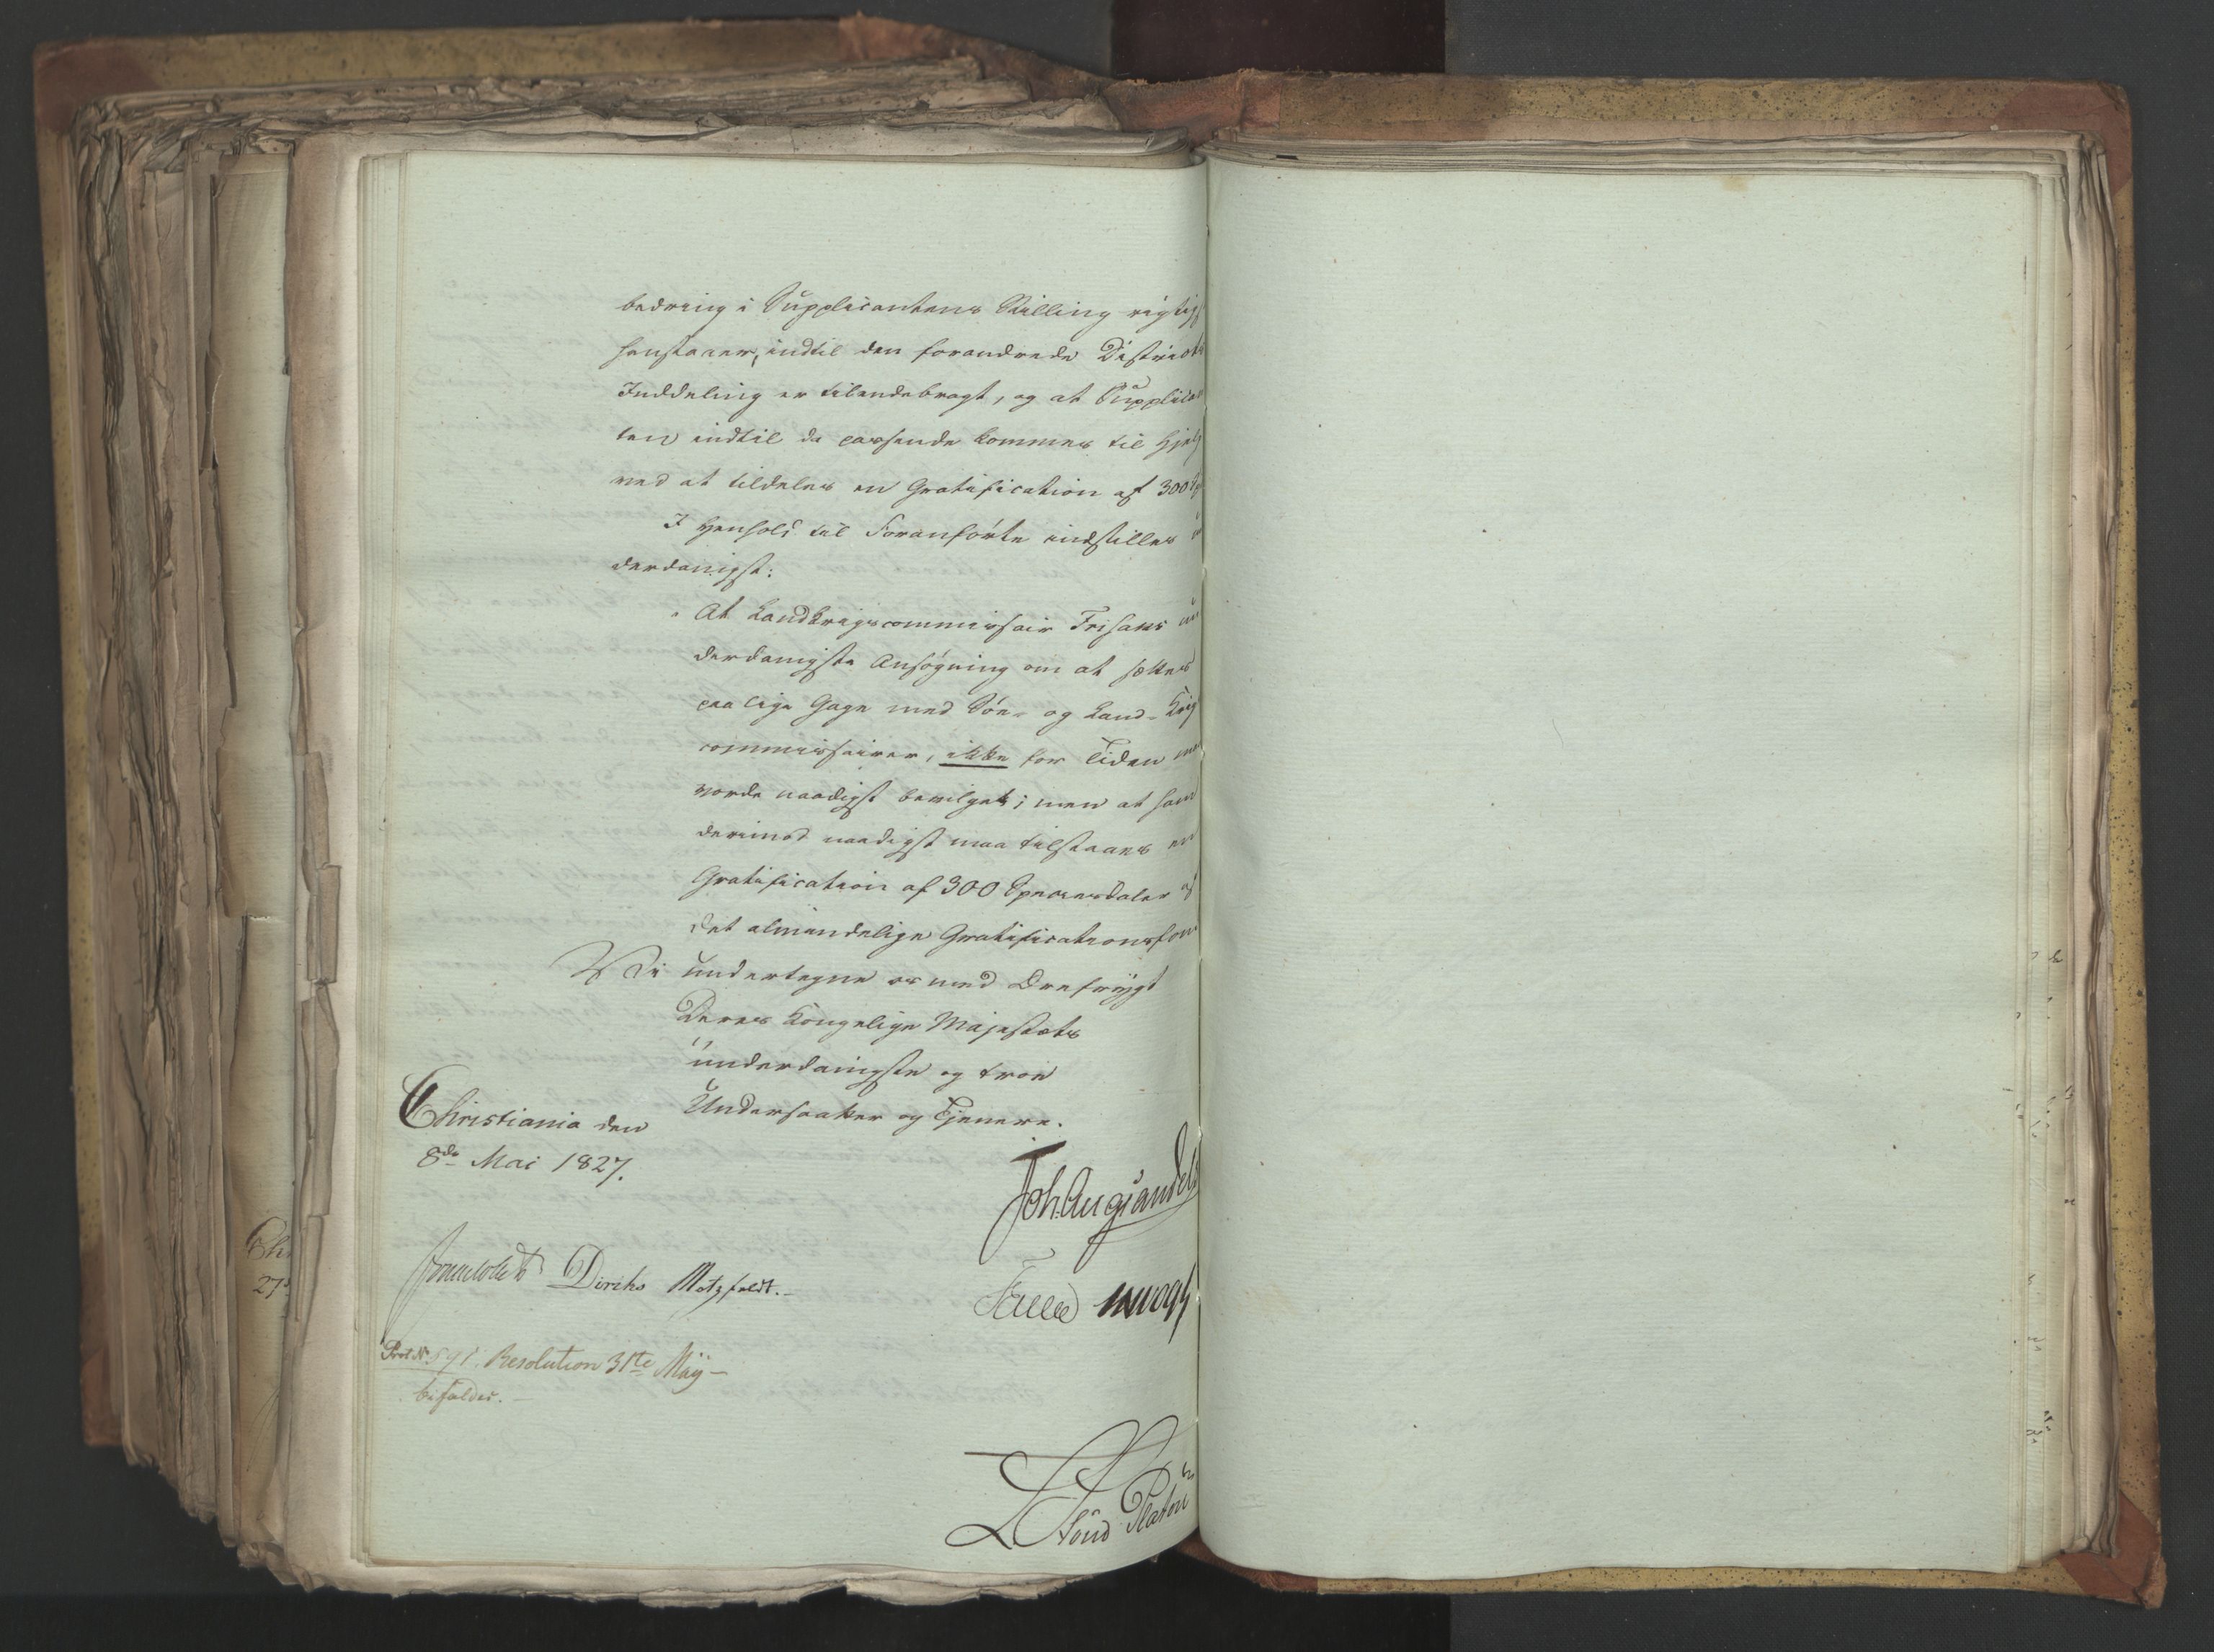 bedring i Supplicantens Stilling rigtigst
henstaaer, indtil den forandrede Districts
Inddeling er tilendebragt, og at Supplican
ten indtil da passende kommes til Hjelp
ved at tildeles en Gratification af 300 Spd
I Henhold til Foranførte indstilles un
derdanigst:
At Landkrigscommissair Frisaks un
derdanigste Ansøgning om at sættes
paa lige Gage med Søe- og Land-Krigs
commissairer, ikke for Tiden maa
vorde naadigst bevilget; men at ham
derimod naadigst maa tilstaaes en
Gratification af 300 Speciesdaler af
det almindelige Gratificationsfond
Vi undertegne os med Ærefrygt
Deres Kongelige Majestæts
underdanigste og troe
Undersaatter og Tjenere.
Christiania den
8de Mai 1827.
Joh. Aug. Sandels
Diriks Motzfeldt.
Fasting Krogh
Prot. No 591. Resolution 31te Maÿ -
bifaldes. -
Lövenskiold Platou
Ch
27